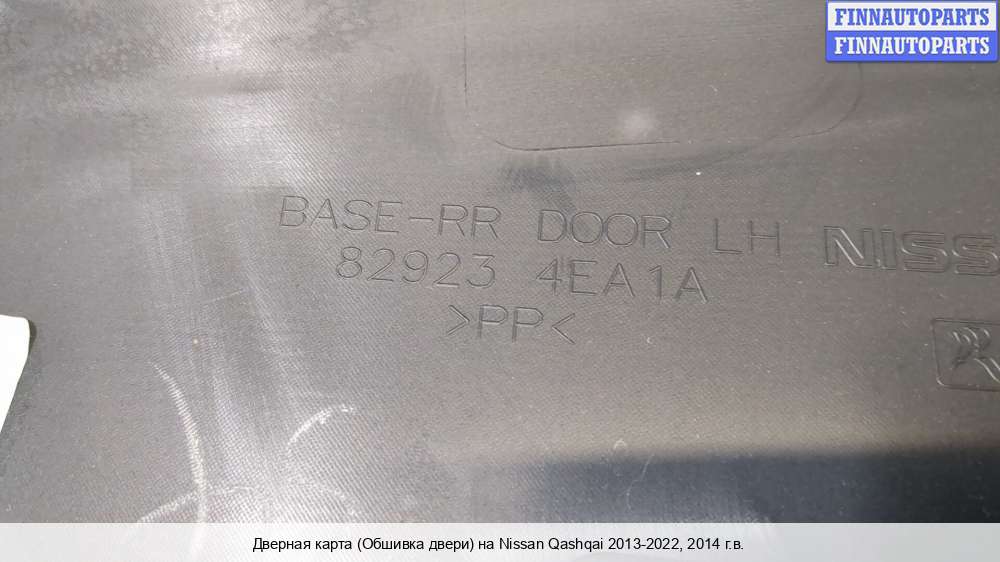 FINNAUTOPARTS
FINNAUTOPARTS
BASE-RR DOOR LH NISS
82923 4EA1A
>PP<
Дверная карта (Обшивка двери) на Nissan Qashqai 2013-2022, 2014 г.в.